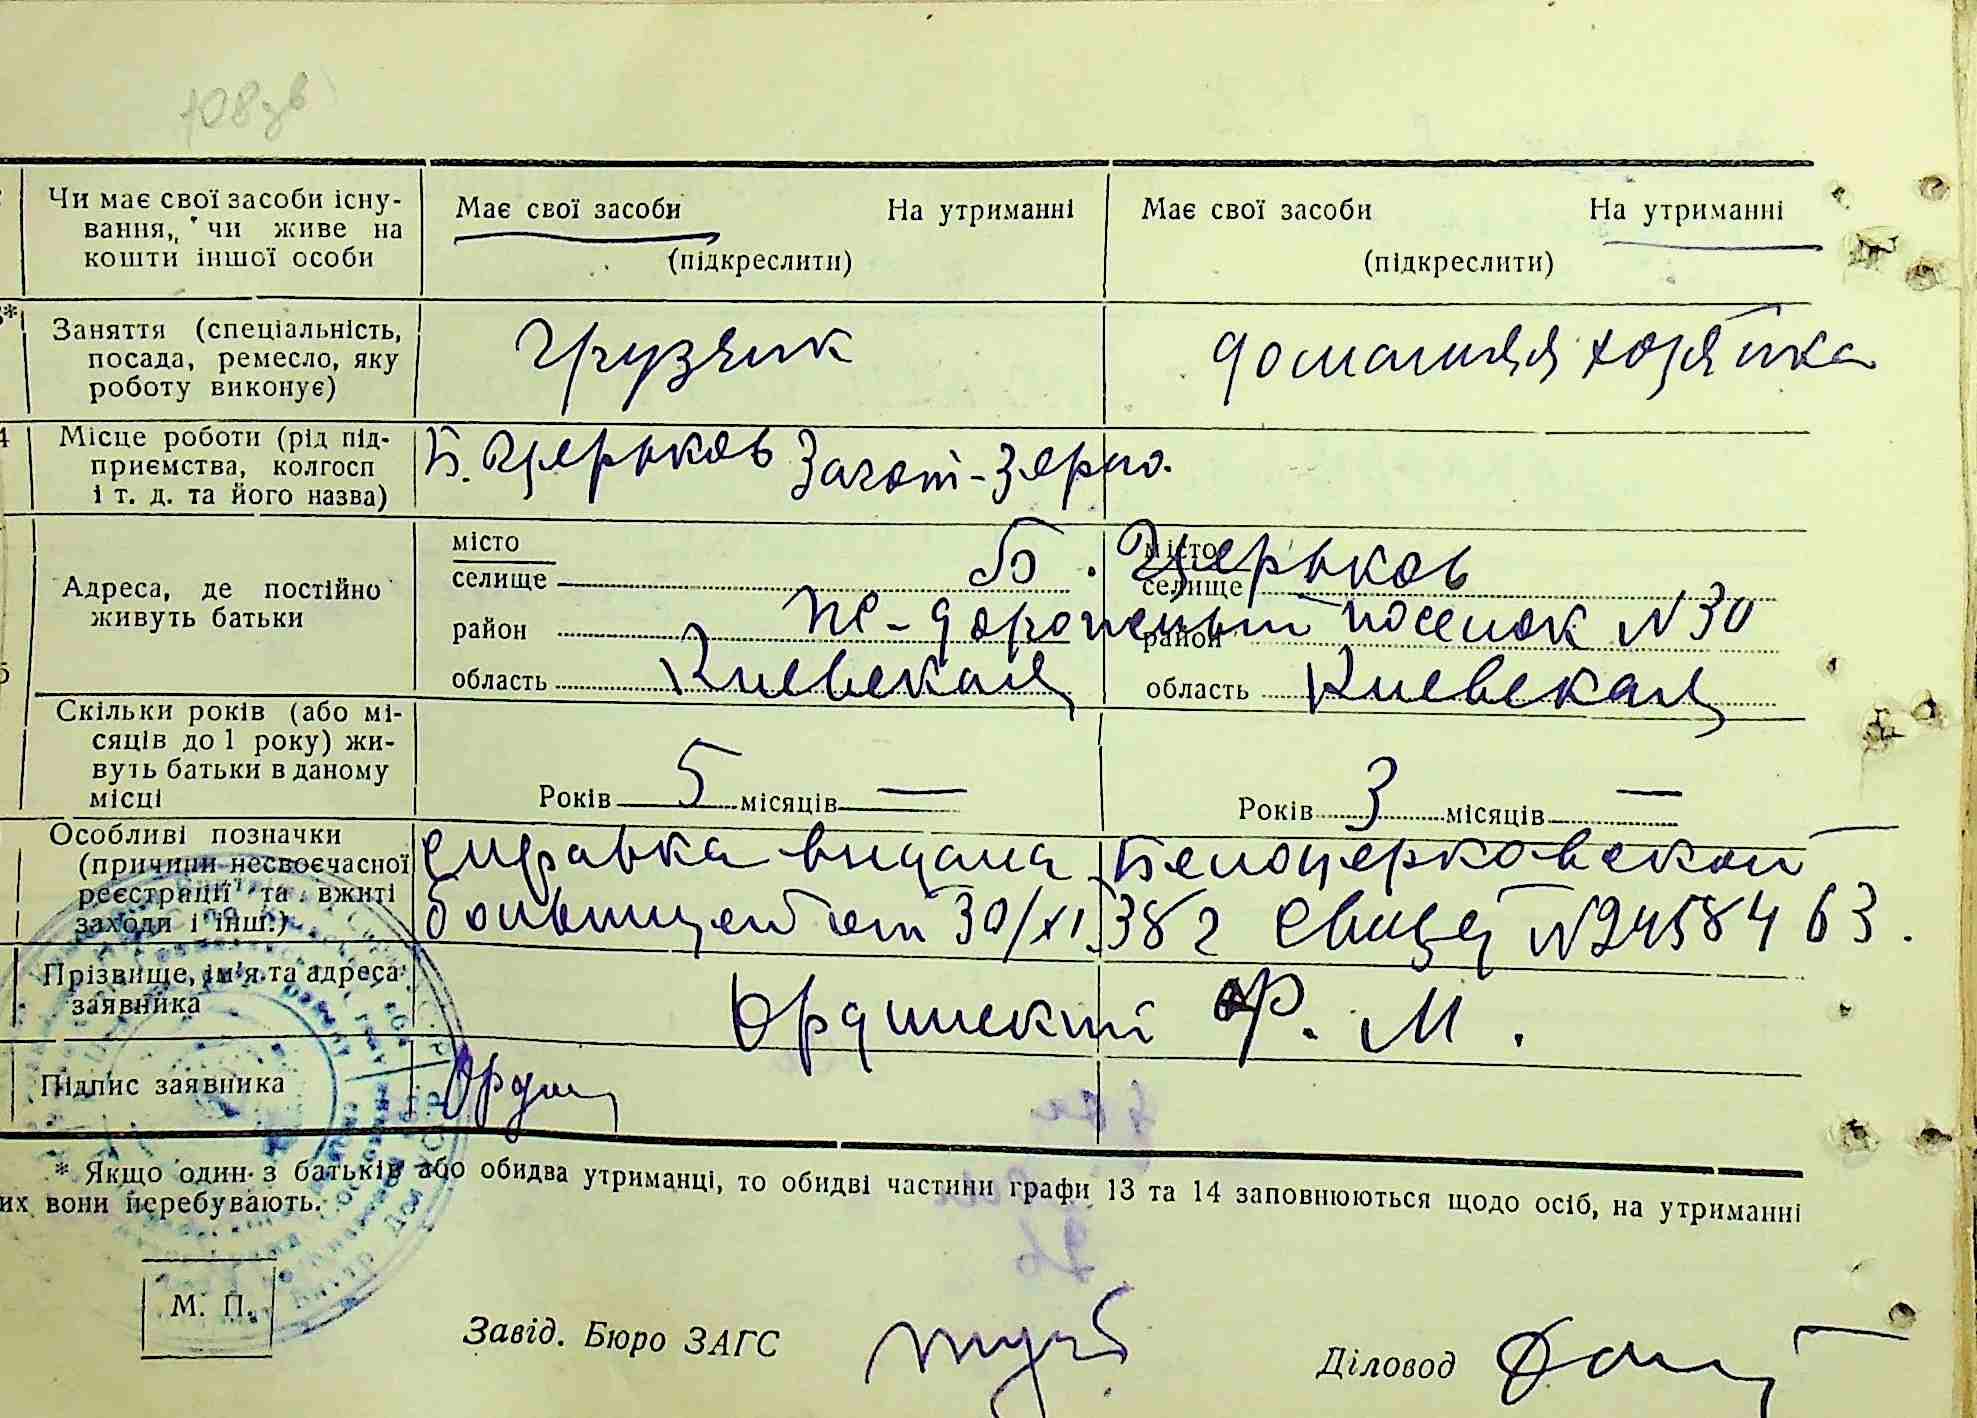 108 зв
Чи має свої засоби існу-
вання, чи живе на
кошти іншої особи
Має свої засоби На утриманні
(підкреслити)
Має свої засоби На утриманні
(підкреслити)
Заняття (спеціальність,
посада, ремесло, яку
роботу виконує)
грузчик
домашняя хозяйка
4
Місце роботи (рід під-
приємства, колгосп
і т. д. та його назва)
Б. Церьков Загот-Зерно.
Адреса, де постійно
живуть батьки
місто
селище
район
область
місто
селище
район
область
Б. Церьков
поселок N 30
Киевская
Киевская
5
Скільки років (або мі-
сяців до 1 року) жи-
вуть батьки в даному
місці
Років 5 місяців —
Років 3 місяців —
Особливі позначки
(причини несвоєчасної
реєстрації та вжиті
заходи і інш.)
справка выдана Белоцерковской
больницей от 30/XI.38 г N 2458463.
Прізвище, ім'я та адреса
заявника
Ордынский Ф. М.
Підпис заявника
* Якщо один з батьків або обидва утриманці, то обидві частини графи 13 та 14 заповнюються щодо осіб, на утриманні
их вони перебувають.
М. П.
Завід. Бюро ЗАГС
Діловод